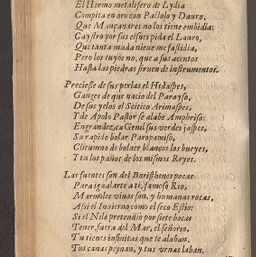 El Hermo metalifero de Lydia
Compita en oro con Pactolo y Dauro,
Que Mançanares no los tiene embidia:
Caystro por sus cisnes pida el Lauro,
Que tanta muda nieue me fastidia,
Pero los tuyos no, que a sus accentos
Hasta las piedras siruen de instrumentos.
Preciese de sus perlas el Hidaspes,
Ganges de que nacio del Parayso,
De sus yelos el Scitico Arimaspes,
Y de Apolo Pastor se alabe Amphriso:
Engrandezca Genil sus verdes jaspes,
Su rapido bolar Paropamiso,
Clitumno de boluer blancos los bueyes,
Y tu los paños de los mismos Reyes.
Las fuentes son del Boristhenes pocas
Para igualarte a ti, famoso Rio,
Marmoles viuos son, y humanas rocas,
Assi el Inuierno como el seco Estio:
Si el Nilo pretendio por siete bocas
Tener, sutra del Mar, el señorio,
Tu tienes infinitas que te alaban,
Tus canas peynan, y tus venas laban.